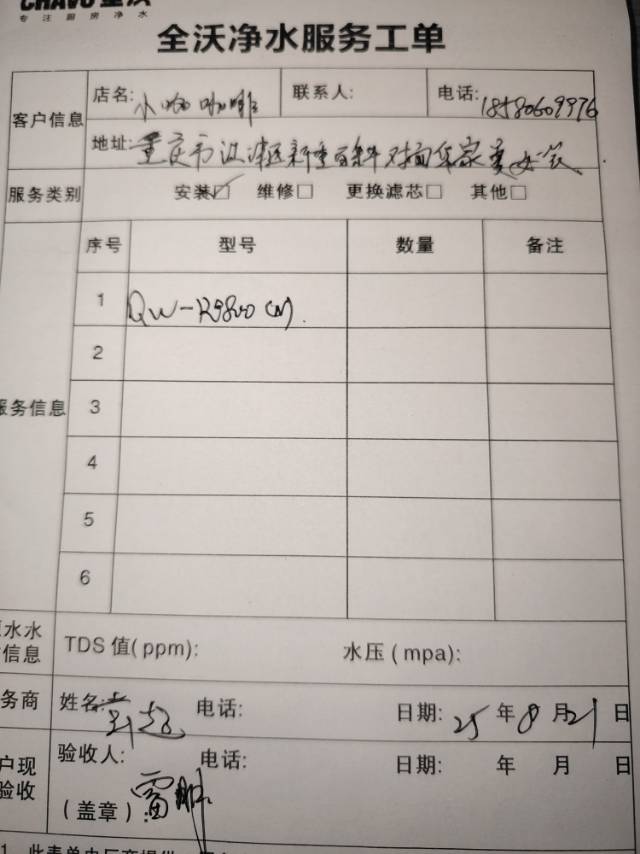 CHAVO 全沃
专注厨房净水
全沃净水服务工单
客户信息
店名: 小咖咖啡 联系人: 电话: 18580609976
地址: 重庆市江津区新重百 对面
服务类别 安装☑ 维修□ 更换滤芯□ 其他□
服务信息
序号 型号 数量 备注
1 QW-R9800
2
3
4
5
6
水水
信息
TDS 值(ppm): 水压(mpa):
务商
姓名: 电话: 日期: 25 年 8 月 21 日
户现
验收
验收人: 雷 电话: 日期: 年 月 日
(盖章)